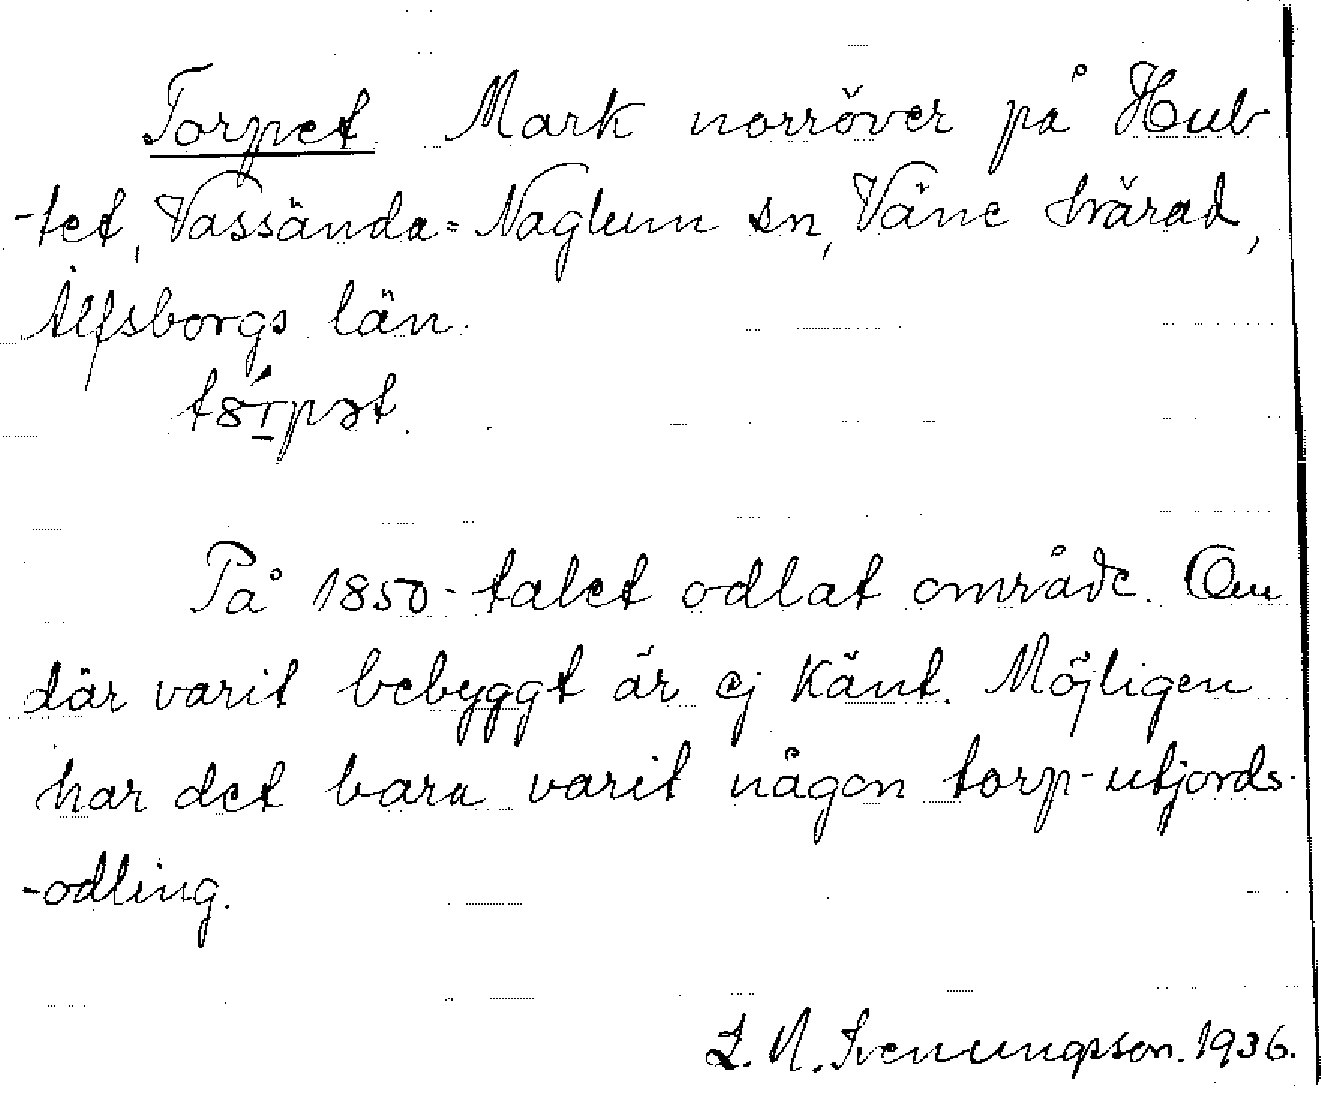 Torpet Mark norröver på Hul-
-tet, Vassända=Naglum sn, Väne härad,
Älfsborgs län.
På 1850-talet odlat område. Om
där varit bebyggt är ej känt. Möjligen
har det bara varit någon torp-utjords-
-odling.
L. N. Svenungsson. 1936.